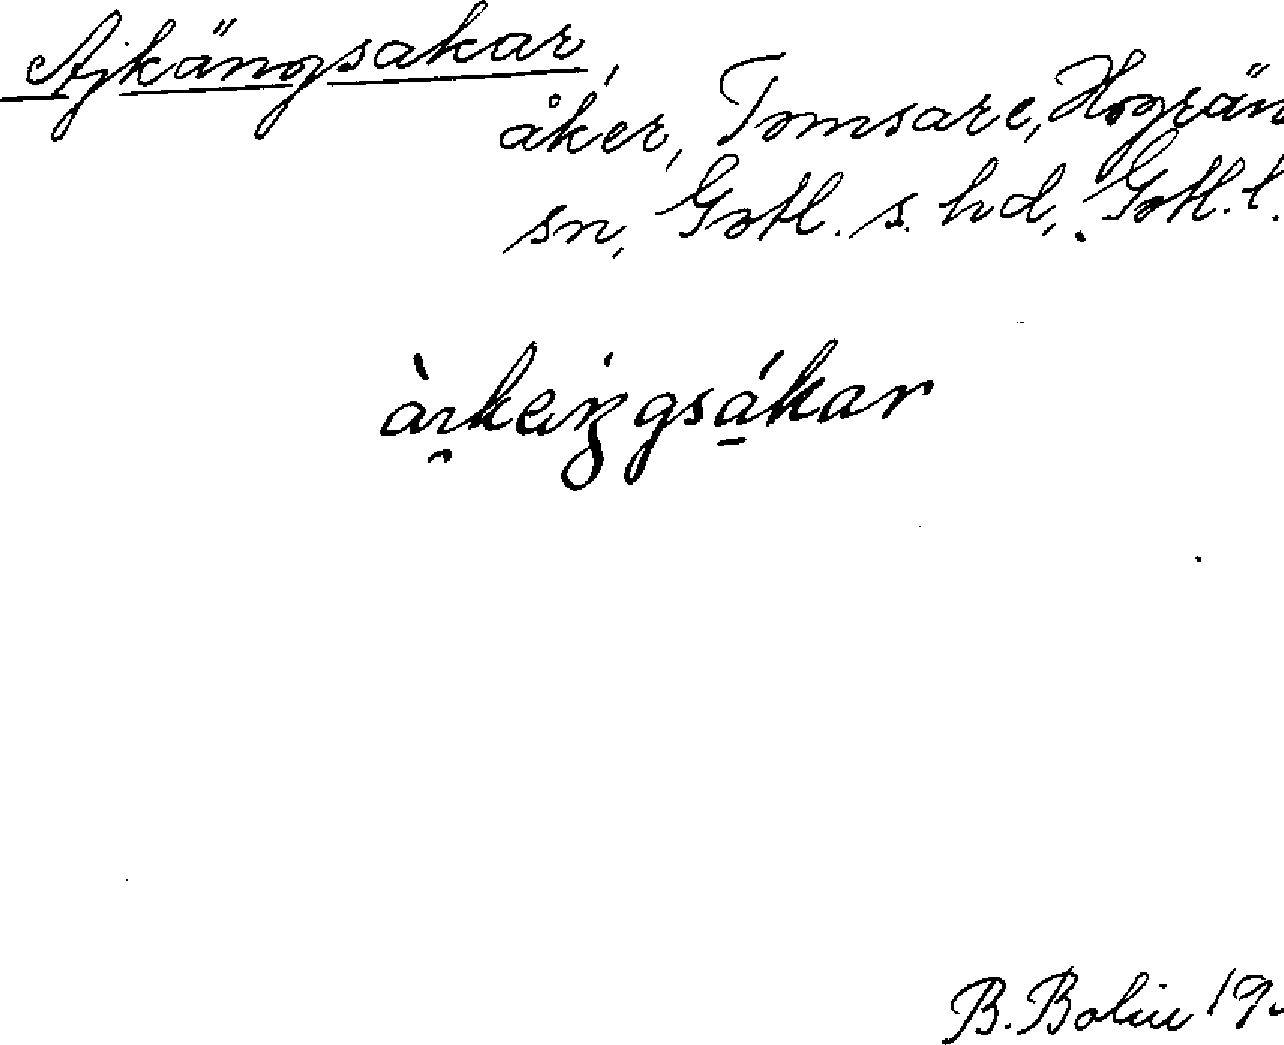 Ajkängsakar,
åker, Tomsare, Hogrän
sn, Gotl. s. hd, Gotl. l.
B. Bolin 19